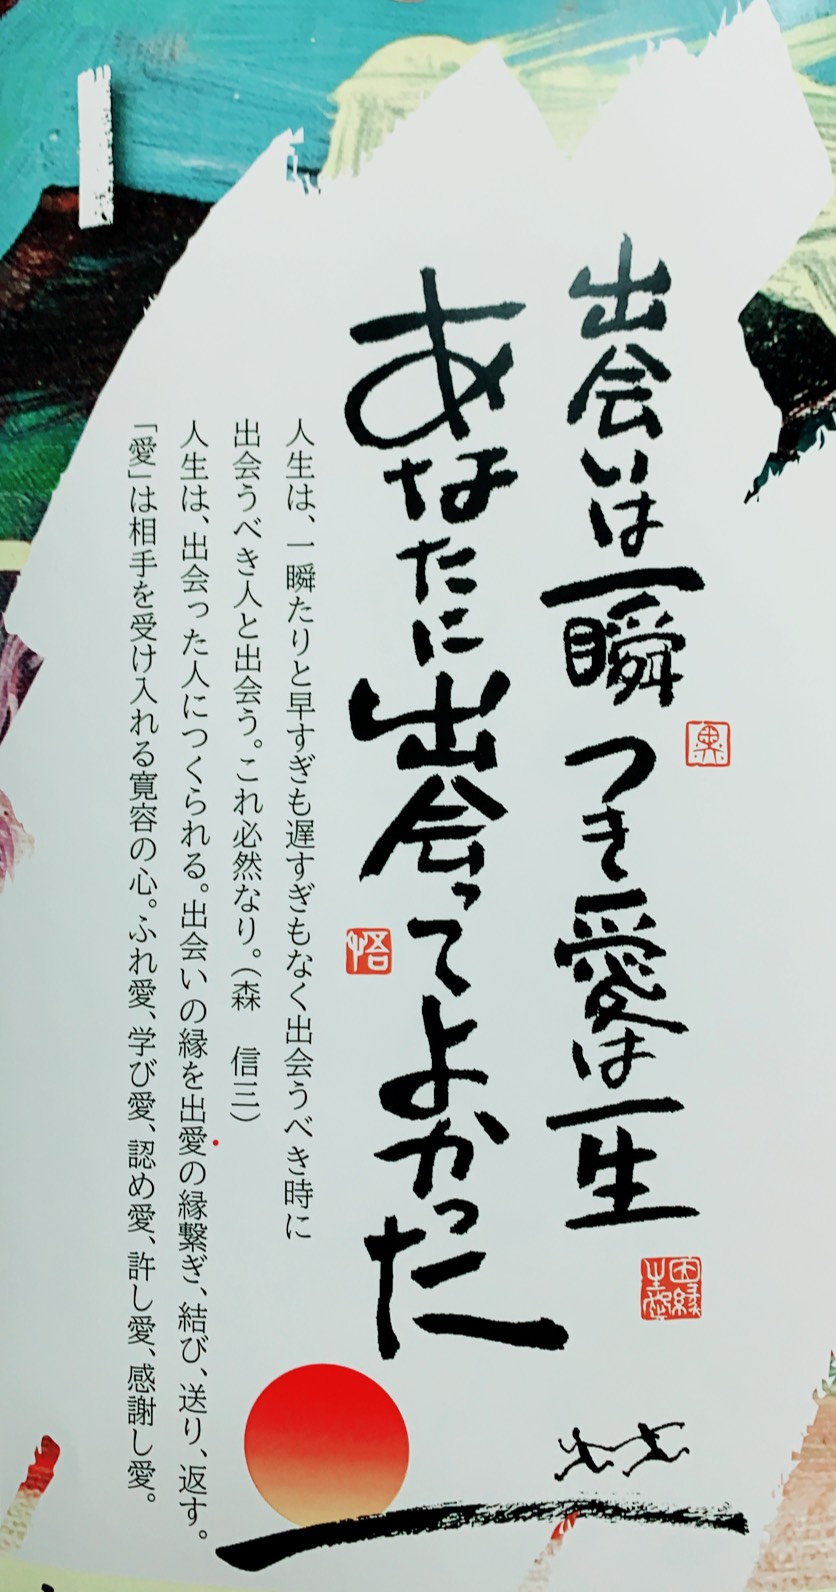 出会いは一瞬つき愛は一生
あなたに出会ってよかった
人生は、一瞬たりと早すぎも遅すぎもなく出会うべき時に
出会うべき人と出会う。これ必然なり。（森　信三）
人生は、出会った人につくられる。出会いの縁を出愛の縁繋ぎ、結び、送り、返す。
「愛」は相手を受け入れる寛容の心。ふれ愛、学び愛、認め愛、許し愛、感謝し愛。